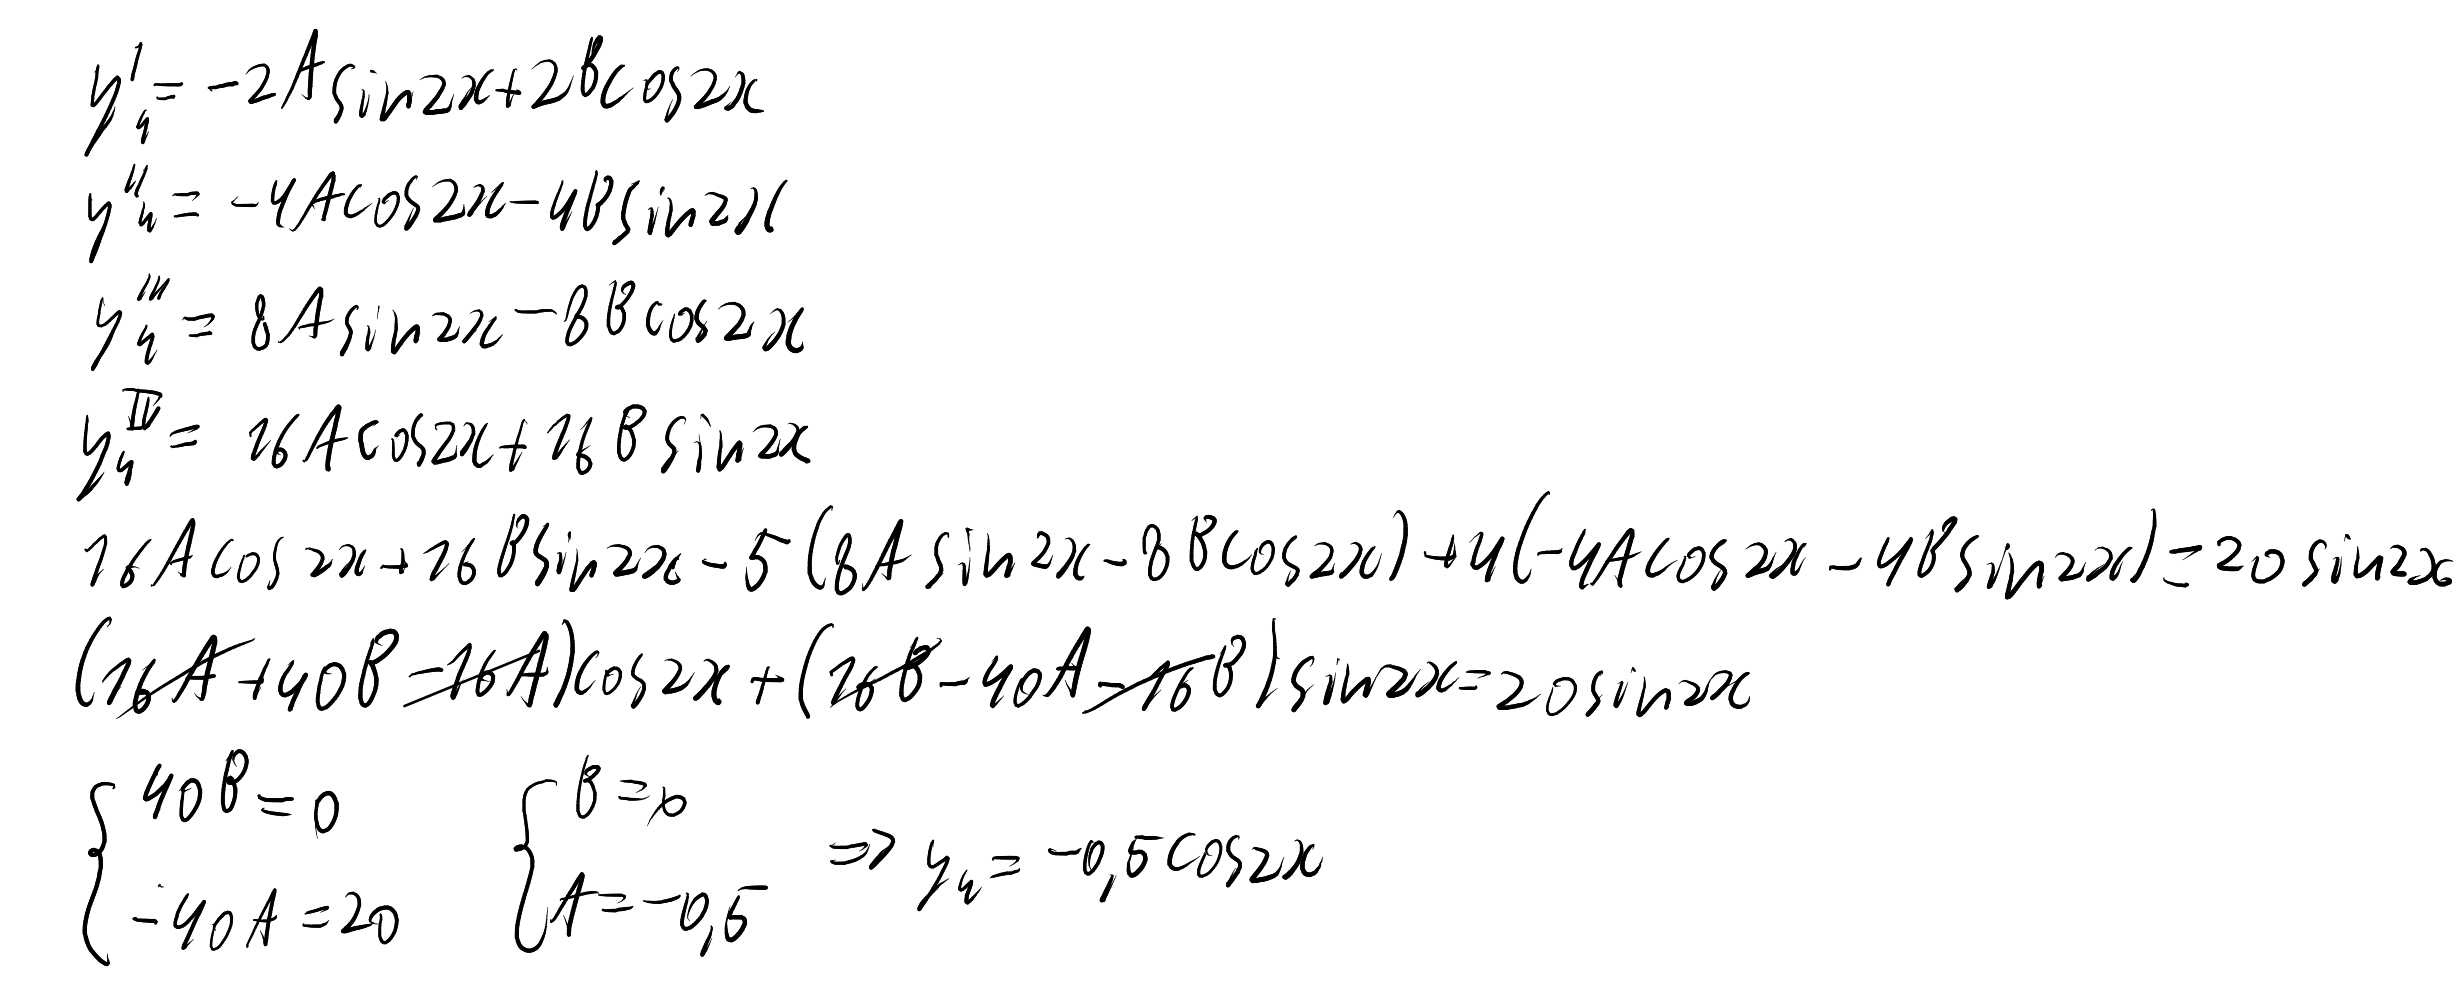 y'ч = -2A sin2x+2Bcos2x
y''ч = -4Acos2x-4Bsin2x
y'''ч = 8A sin2x-8Bcos2x
y^IVч = 16Acos2x+16B sin2x
16A cos2x+16B sin2x-5(8A sin2x-8Bcos2x)+4(-4Acos2x-4Bsin2x)=20 sin2x
(16A+40B-16A)cos2x+(16B-40A-16B)sin2x=20sin2x
{ 40B=0 { B=0
⇒ yч = -0,5cos2x
-40A=20 A=-0,5